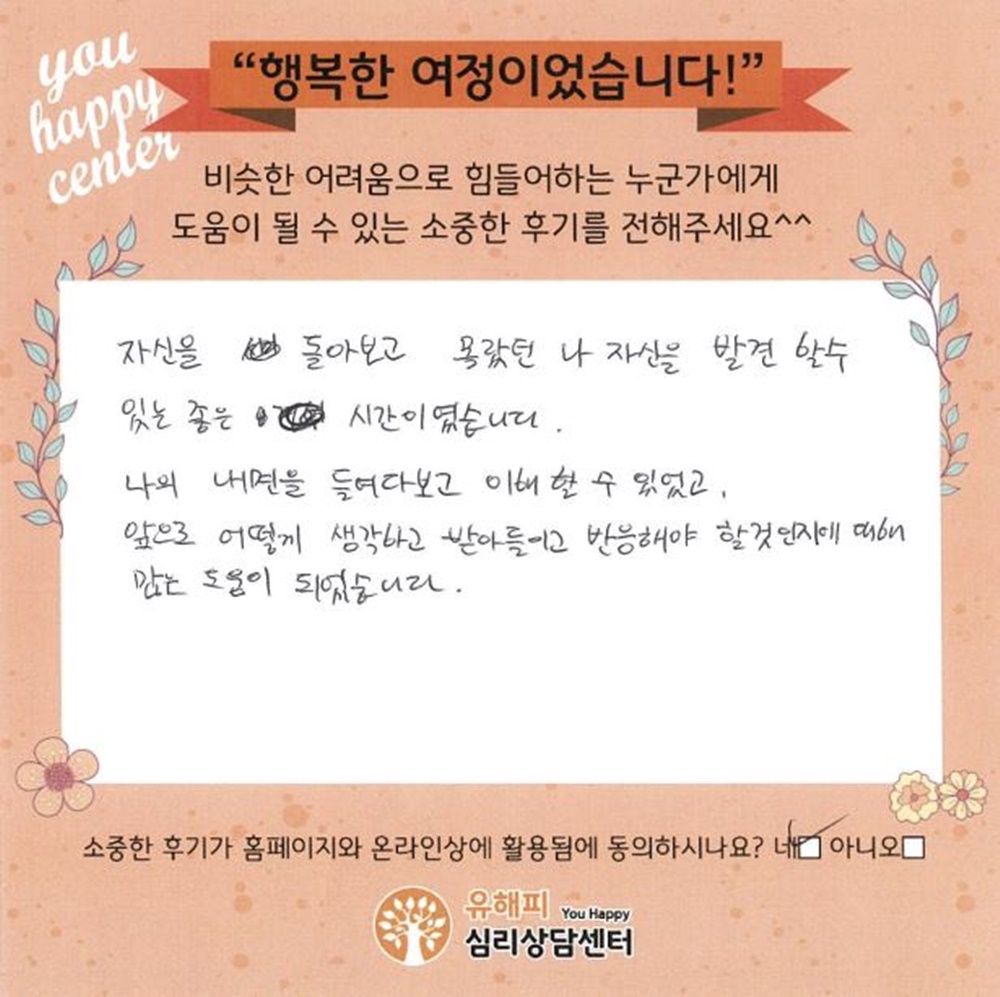 you
happy
center
“행복한 여정이었습니다!”
비슷한 어려움으로 힘들어하는 누군가에게
도움이 될 수 있는 소중한 후기를 전해주세요^^
자신을 돌아보고 몰랐던 나 자신을 발견 할수
있는 좋은 시간이였습니다.
나의 내면을 들여다보고 이해 할 수 있었고,
앞으로 어떻게 생각하고 받아들이고 반응해야 할것인지에 대해
많은 도움이 되었습니다.
소중한 후기가 홈페이지와 온라인상에 활용됨에 동의하시나요? 네 아니오
유해피 You Happy
심리상담센터